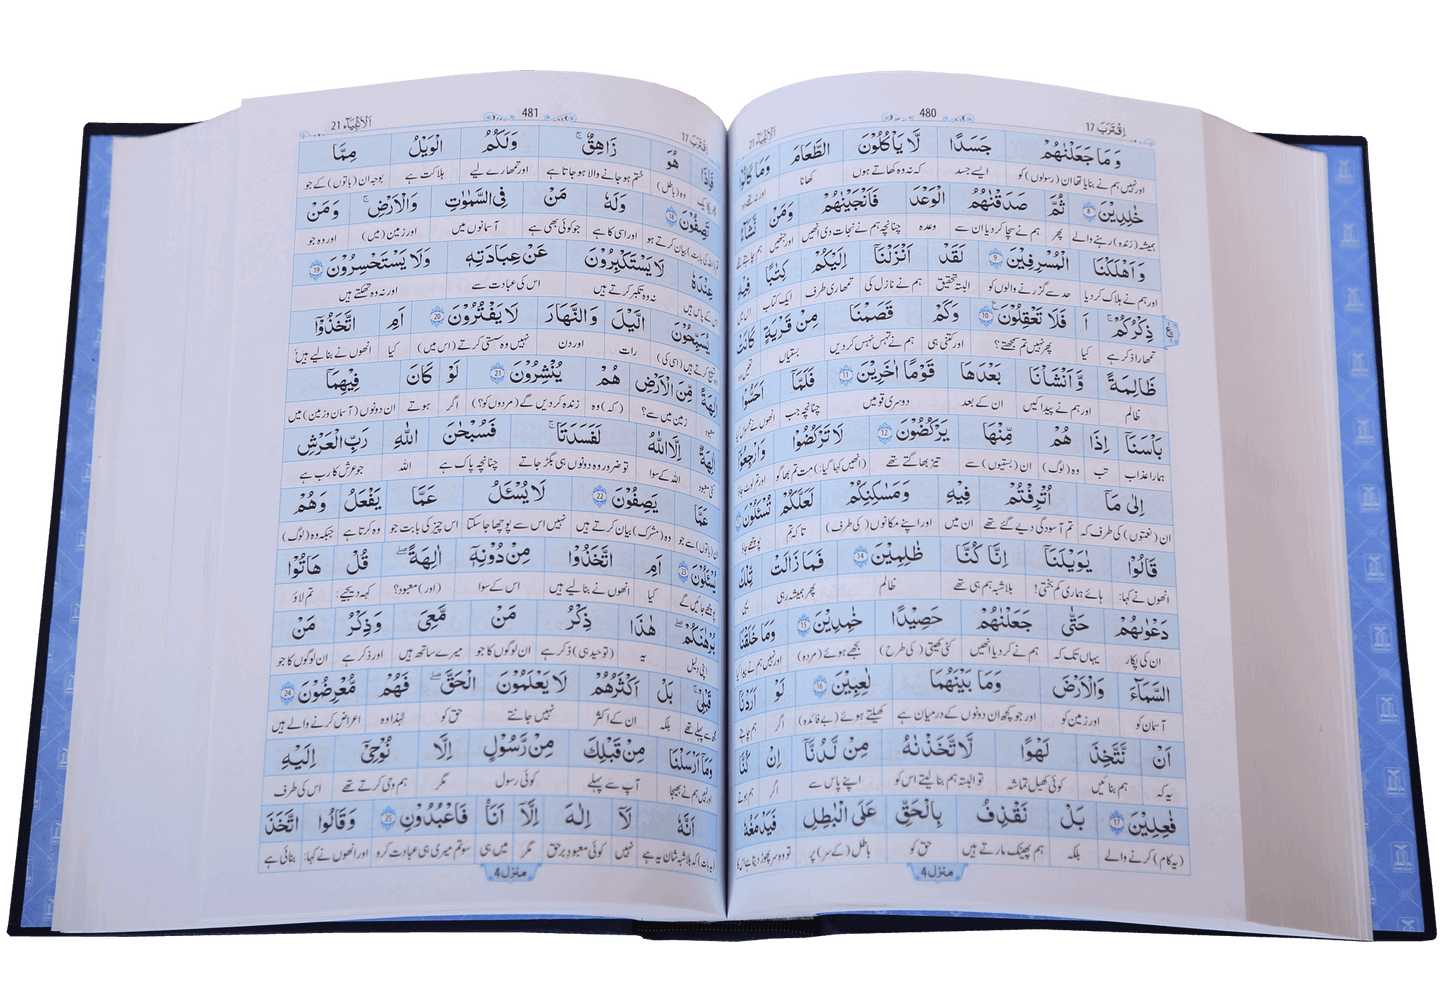 اِقْتَرَبَ 17 480 اَلْاَنْبِيَآء 21
وَمَا جَعَلْنٰهُمْ جَسَدًا لَّا يَاْكُلُوْنَ الطَّعَامَ وَمَا كَانُوْا
اور نہیں ہم نے بنایا تھا ان (رسولوں) کو ایسے جسد کہ نہ وہ کھاتے ہوں کھانا
خٰلِدِيْنَ 8 ثُمَّ صَدَقْنٰهُمُ الْوَعْدَ فَاَنْجَيْنٰهُمْ وَمَنْ نَّشَآءُ
ہمیشہ (زندہ) رہنے والے پھر ہم نے سچا کر دیا ان سے وعدہ چنانچہ ہم نے نجات دی انھیں اور جنھیں ہم چاہتے تھے
وَاَهْلَكْنَا الْمُسْرِفِيْنَ 9 لَقَدْ اَنْزَلْنَآ اِلَيْكُمْ كِتٰبًا فِيْهِ
اور ہم نے ہلاک کر دیا حد سے گزرنے والوں کو البتہ تحقیق ہم نے نازل کی تمھاری طرف ایک کتاب
ذِكْرُكُمْ ؕ اَ فَلَا تَعْقِلُوْنَ 10 وَكَمْ قَصَمْنَا مِنْ قَرْيَةٍ كَانَتْ
تمھارا ذکر ہے کیا پھر نہیں تم سمجھتے؟ اور کتنی ہی ہم نے تہس نہس کر دیں بستیاں
ظَالِمَةً وَّاَنْشَاْنَا بَعْدَهَا قَوْمًا اٰخَرِيْنَ 11 فَلَمَّآ اَحَسُّوْا
ظالم اور ہم نے پیدا کیں ان کے بعد دوسری قومیں چنانچہ جب
بَاْسَنَآ اِذَا هُمْ مِّنْهَا يَرْكُضُوْنَ 12 لَا تَرْكُضُوْا وَارْجِعُوْٓا
ہمارا عذاب تب وہ (لوگ) ان (بستیوں) سے تیز بھاگتے تھے (انھیں کہا گیا:) مت تم بھاگو
اِلٰى مَآ اُتْرِفْتُمْ فِيْهِ وَمَسٰكِنِكُمْ لَعَلَّكُمْ تُسْئَلُوْنَ
ان (نعمتوں) کی طرف کہ تم آسودگی دیے گئے تھے ان میں اور اپنے مکانوں (کی طرف) تاکہ تم
قَالُوْا يٰوَيْلَنَآ اِنَّا كُنَّا ظٰلِمِيْنَ 14 فَمَا زَالَتْ تِّلْكَ
انھوں نے کہا: ہائے ہماری کم بختی! بلاشبہ ہم ہی تھے ظالم پھر ہمیشہ رہی یہی
دَعْوٰىهُمْ حَتّٰى جَعَلْنٰهُمْ حَصِيْدًا خٰمِدِيْنَ 15 وَمَا خَلَقْنَا
ان کی پکار یہاں تک کہ ہم نے کر دیا انھیں کٹی کھیتی (کی طرح) بجھے ہوئے (مردہ)
السَّمَآءَ وَالْاَرْضَ وَمَا بَيْنَهُمَا لٰعِبِيْنَ 16 لَوْ اَرَدْنَآ
آسمان کو اور زمین کو اور جو کچھ ان دونوں کے درمیان ہے کھیلتے ہوئے (بے فائدہ) اگر ہم چاہتے
اَنْ نَّتَّخِذَ لَهْوًا لَّاتَّخَذْنٰهُ مِنْ لَّدُنَّآ اِنْ كُنَّا
یہ کہ ہم بنائیں کوئی کھیل تماشہ تو البتہ ہم بنا لیتے اس کو اپنے پاس سے اگر ہم ہوتے
فٰعِلِيْنَ 17 بَلْ نَقْذِفُ بِالْحَقِّ عَلَى الْبَاطِلِ فَيَدْمَغُهٗ
(یہ کام) کرنے والے بلکہ ہم پھینک مارتے ہیں حق کو باطل (کے سر) پر
منزل 4
اِقْتَرَبَ 17 481 اَلْاَنْبِيَآء 21
فَاِذَا هُوَ زَاهِقٌ ؕ وَلَكُمُ الْوَيْلُ مِمَّا
وہ (باطل) ختم ہو جانے والا ہو جاتا ہے اور تمھارے لیے ہلاکت ہے بوجہ ان (باتوں) کے جو
تَصِفُوْنَ 18 وَلَهٗ مَنْ فِى السَّمٰوٰتِ وَالْاَرْضِ ؕ وَمَنْ
بیان کرتے ہو اور اسی کا ہے جو کوئی بھی ہے آسمانوں میں اور زمین (میں) اور وہ جو
عِنْدَهٗ لَا يَسْتَكْبِرُوْنَ عَنْ عِبَادَتِهٖ وَلَا يَسْتَحْسِرُوْنَ 19
اس کے پاس ہیں نہ وہ تکبر کرتے ہیں اس کی عبادت سے اور نہ وہ تھکتے ہیں
يُسَبِّحُوْنَ الَّيْلَ وَالنَّهَارَ لَا يَفْتُرُوْنَ 20 اَمِ اتَّخَذُوْٓا
تسبیح کرتے ہیں (اسی کی) رات اور دن نہیں وہ سستی کرتے (اس میں) کیا انھوں نے بنا لیے ہیں
اٰلِهَةً مِّنَ الْاَرْضِ هُمْ يُنْشِرُوْنَ 21 لَوْ كَانَ فِيْهِمَآ
معبود زمین میں سے؟ (کہ) وہ زندہ کر دیں گے (مردوں کو؟) اگر ہوتے ان دونوں (آسمان و زمین) میں
اٰلِهَةٌ اِلَّا اللّٰهُ لَفَسَدَتَا ۚ فَسُبْحٰنَ اللّٰهِ رَبِّ الْعَرْشِ
کئی معبود اللہ کے سوا تو ضرور وہ دونوں ہی بگڑ جاتے چنانچہ پاک ہے اللہ جو عرش کا رب ہے
عَمَّا يَصِفُوْنَ 22 لَا يُسْئَلُ عَمَّا يَفْعَلُ وَهُمْ
ان (باتوں) سے جو وہ (مشرک) بیان کرتے ہیں نہیں اس سے پوچھا جا سکتا اس چیز کی بابت جو وہ کرتا ہے جبکہ وہ (لوگ)
يُسْئَلُوْنَ 23 اَمِ اتَّخَذُوْا مِنْ دُوْنِهٖٓ اٰلِهَةً ؕ قُلْ هَاتُوْا
پوچھے جائیں گے کیا انھوں نے بنا لیے ہیں اس کے سوا (اور) معبود؟ کہہ دیجیے: تم لاؤ
بُرْهَانَكُمْ ۚ هٰذَا ذِكْرُ مَنْ مَّعِىَ وَذِكْرُ مَنْ
اپنی دلیل یہ (توحید ہی) ذکر ہے ان لوگوں کا جو میرے ساتھ ہیں اور ذکر ہے ان لوگوں کا جو
قَبْلِىْ ؕ بَلْ اَكْثَرُهُمْ لَا يَعْلَمُوْنَ الْحَقَّ فَهُمْ مُّعْرِضُوْنَ 24
مجھ سے پہلے تھے بلکہ ان کے اکثر نہیں جانتے حق کو لہٰذا وہ اعراض کرنے والے ہیں
وَمَآ اَرْسَلْنَا مِنْ قَبْلِكَ مِنْ رَّسُوْلٍ اِلَّا نُوْحِىْٓ اِلَيْهِ
اور نہیں ہم نے بھیجا آپ سے پہلے کوئی رسول مگر ہم وحی کرتے تھے اس کی طرف
اَنَّهٗ لَآ اِلٰهَ اِلَّآ اَنَا فَاعْبُدُوْنِ 25 وَقَالُوا اتَّخَذَ
کہ بلاشبہ شان یہ ہے نہیں کوئی معبود برحق مگر میں ہی سو تم میری ہی عبادت کرو اور انھوں نے کہا: بنائی ہے
منزل 4